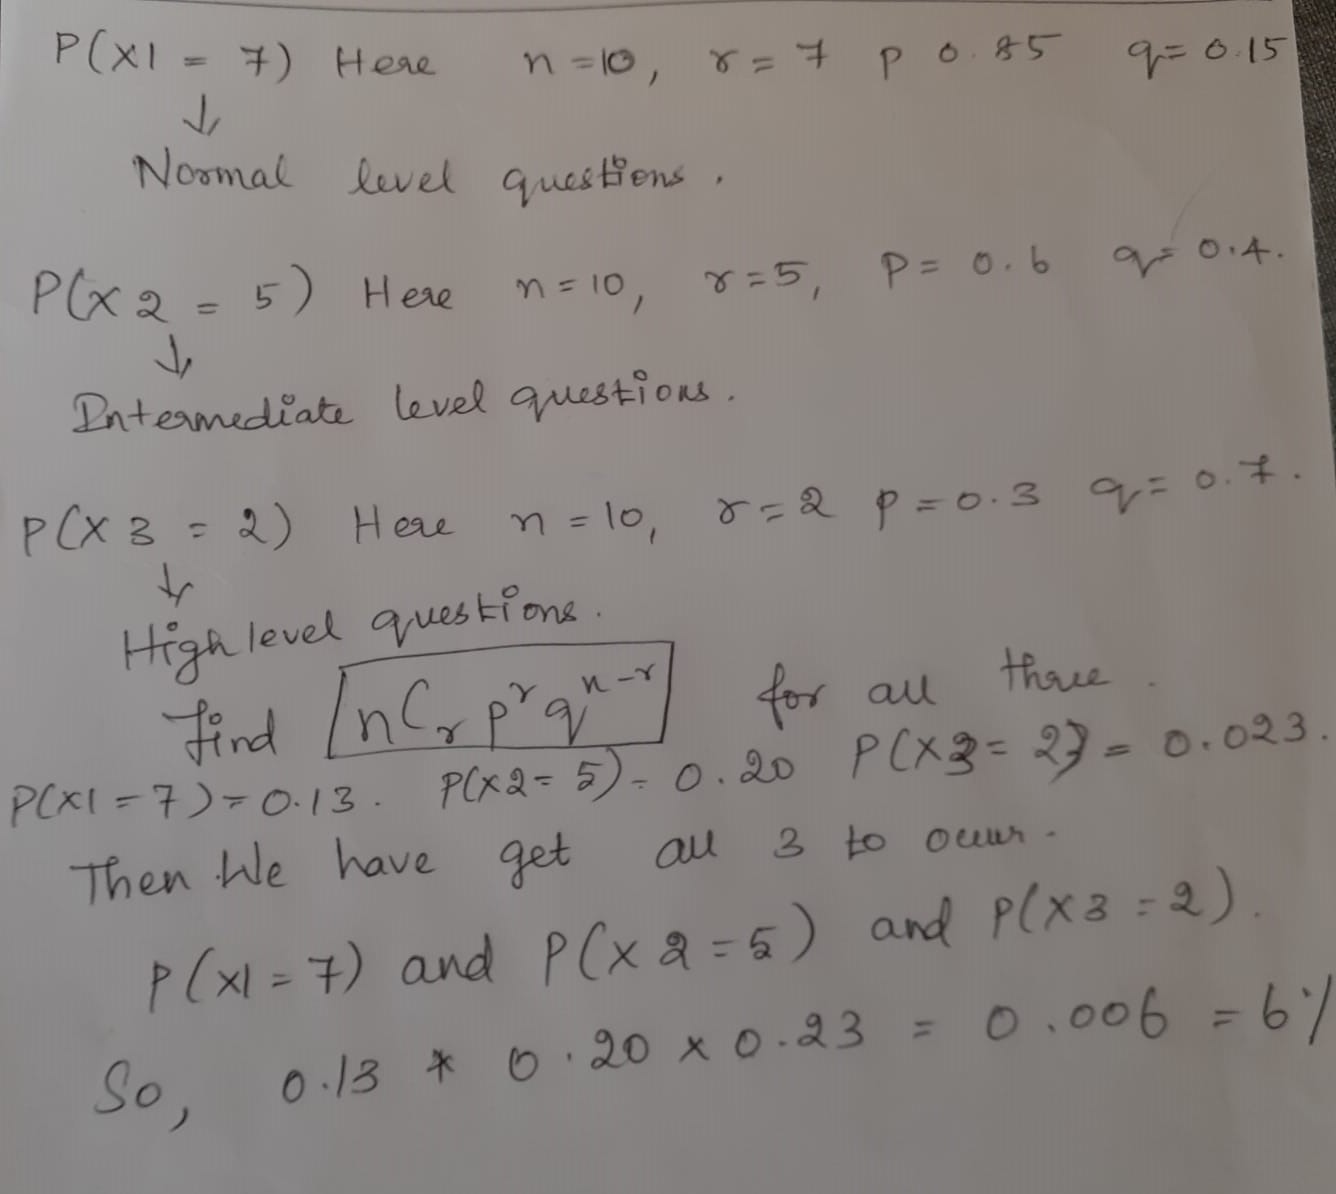 P(X1 = 7) Here n=10, r=7 p 0.85 q=0.15
↓
Normal level questions.
P(X2 = 5) Here n=10, r=5, p=0.6 q=0.4.
↓
Intermediate level questions.
P(X3 = 2) Here n=10, r=2 p=0.3 q=0.7.
↓
High level questions.
find nCr p^r q^n-r for all three.
P(X1=7)=0.13. P(X2=5)=0.20 P(X3=2)=0.023.
Then We have get all 3 to occur.
P(X1=7) and P(X2=5) and P(X3=2).
So, 0.13 * 0.20 x 0.23 = 0.006 = 6%